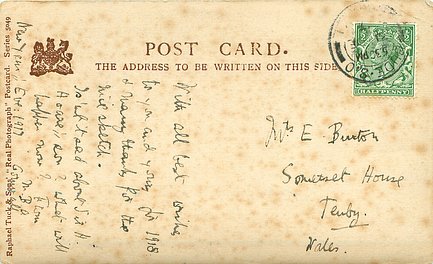 POST CARD.
THE ADDRESS TO BE WRITTEN ON THIS SIDE
HALFPENNY
Raphael Tuck & Sons' "Real Photograph" Postcard. Series 3049
With all best wishes
to you and yours for 1918
& many thanks for the
nice sketch.
Isn't it sad about
now?
New Years Eve. 1917
Mrs E Burton
Somerset House
Tenby.
Wales.